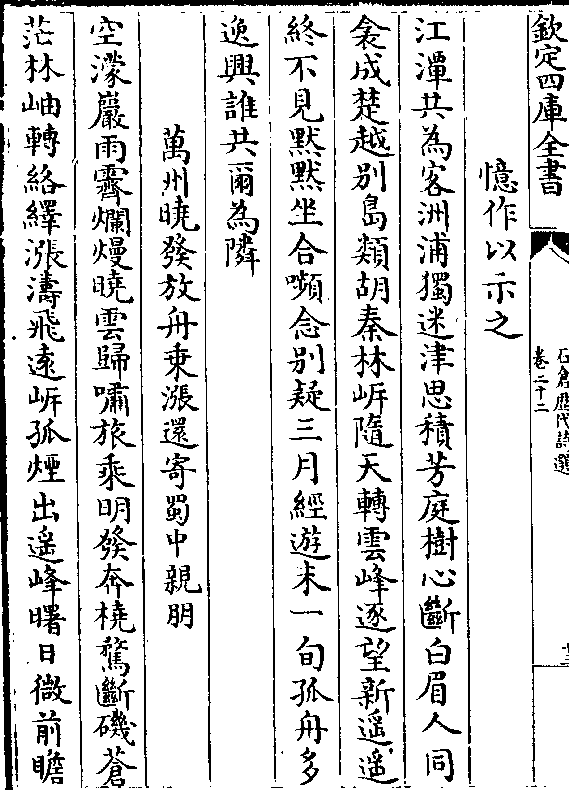 欽定四庫全書
石倉歴代詩選
卷二十二
十三
憶作以示之
江潭共為客洲浦獨迷津思積芳庭樹心斷白眉人同
衾成楚越别島類胡秦林㟁隨天轉雲峰逐望新遥遥
終不見黙黙坐合嚬念别疑三月經遊未一旬孤舟多
逸興誰共爾為隣
萬州曉發放舟乗漲還寄蜀中親朋
空濛巖雨霽爛熳曉雲歸嘯旅乘明發奔橈騖斷磯蒼
茫林岫轉絡繹漲濤飛遠㟁孤煙出遥峰曙日微前瞻